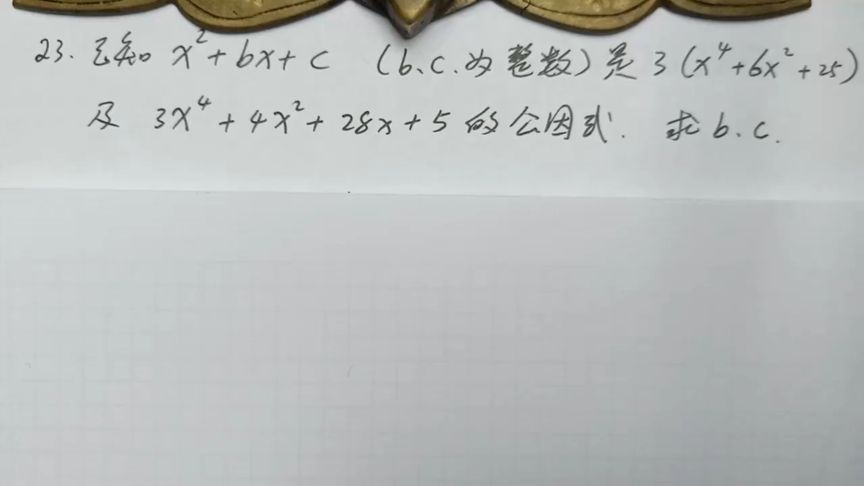 23. 已知 x²+bx+c (b、c.为整数)是 3(x⁴+6x²+25)
及 3x⁴+4x²+28x+5 的公因式. 求 b、c.